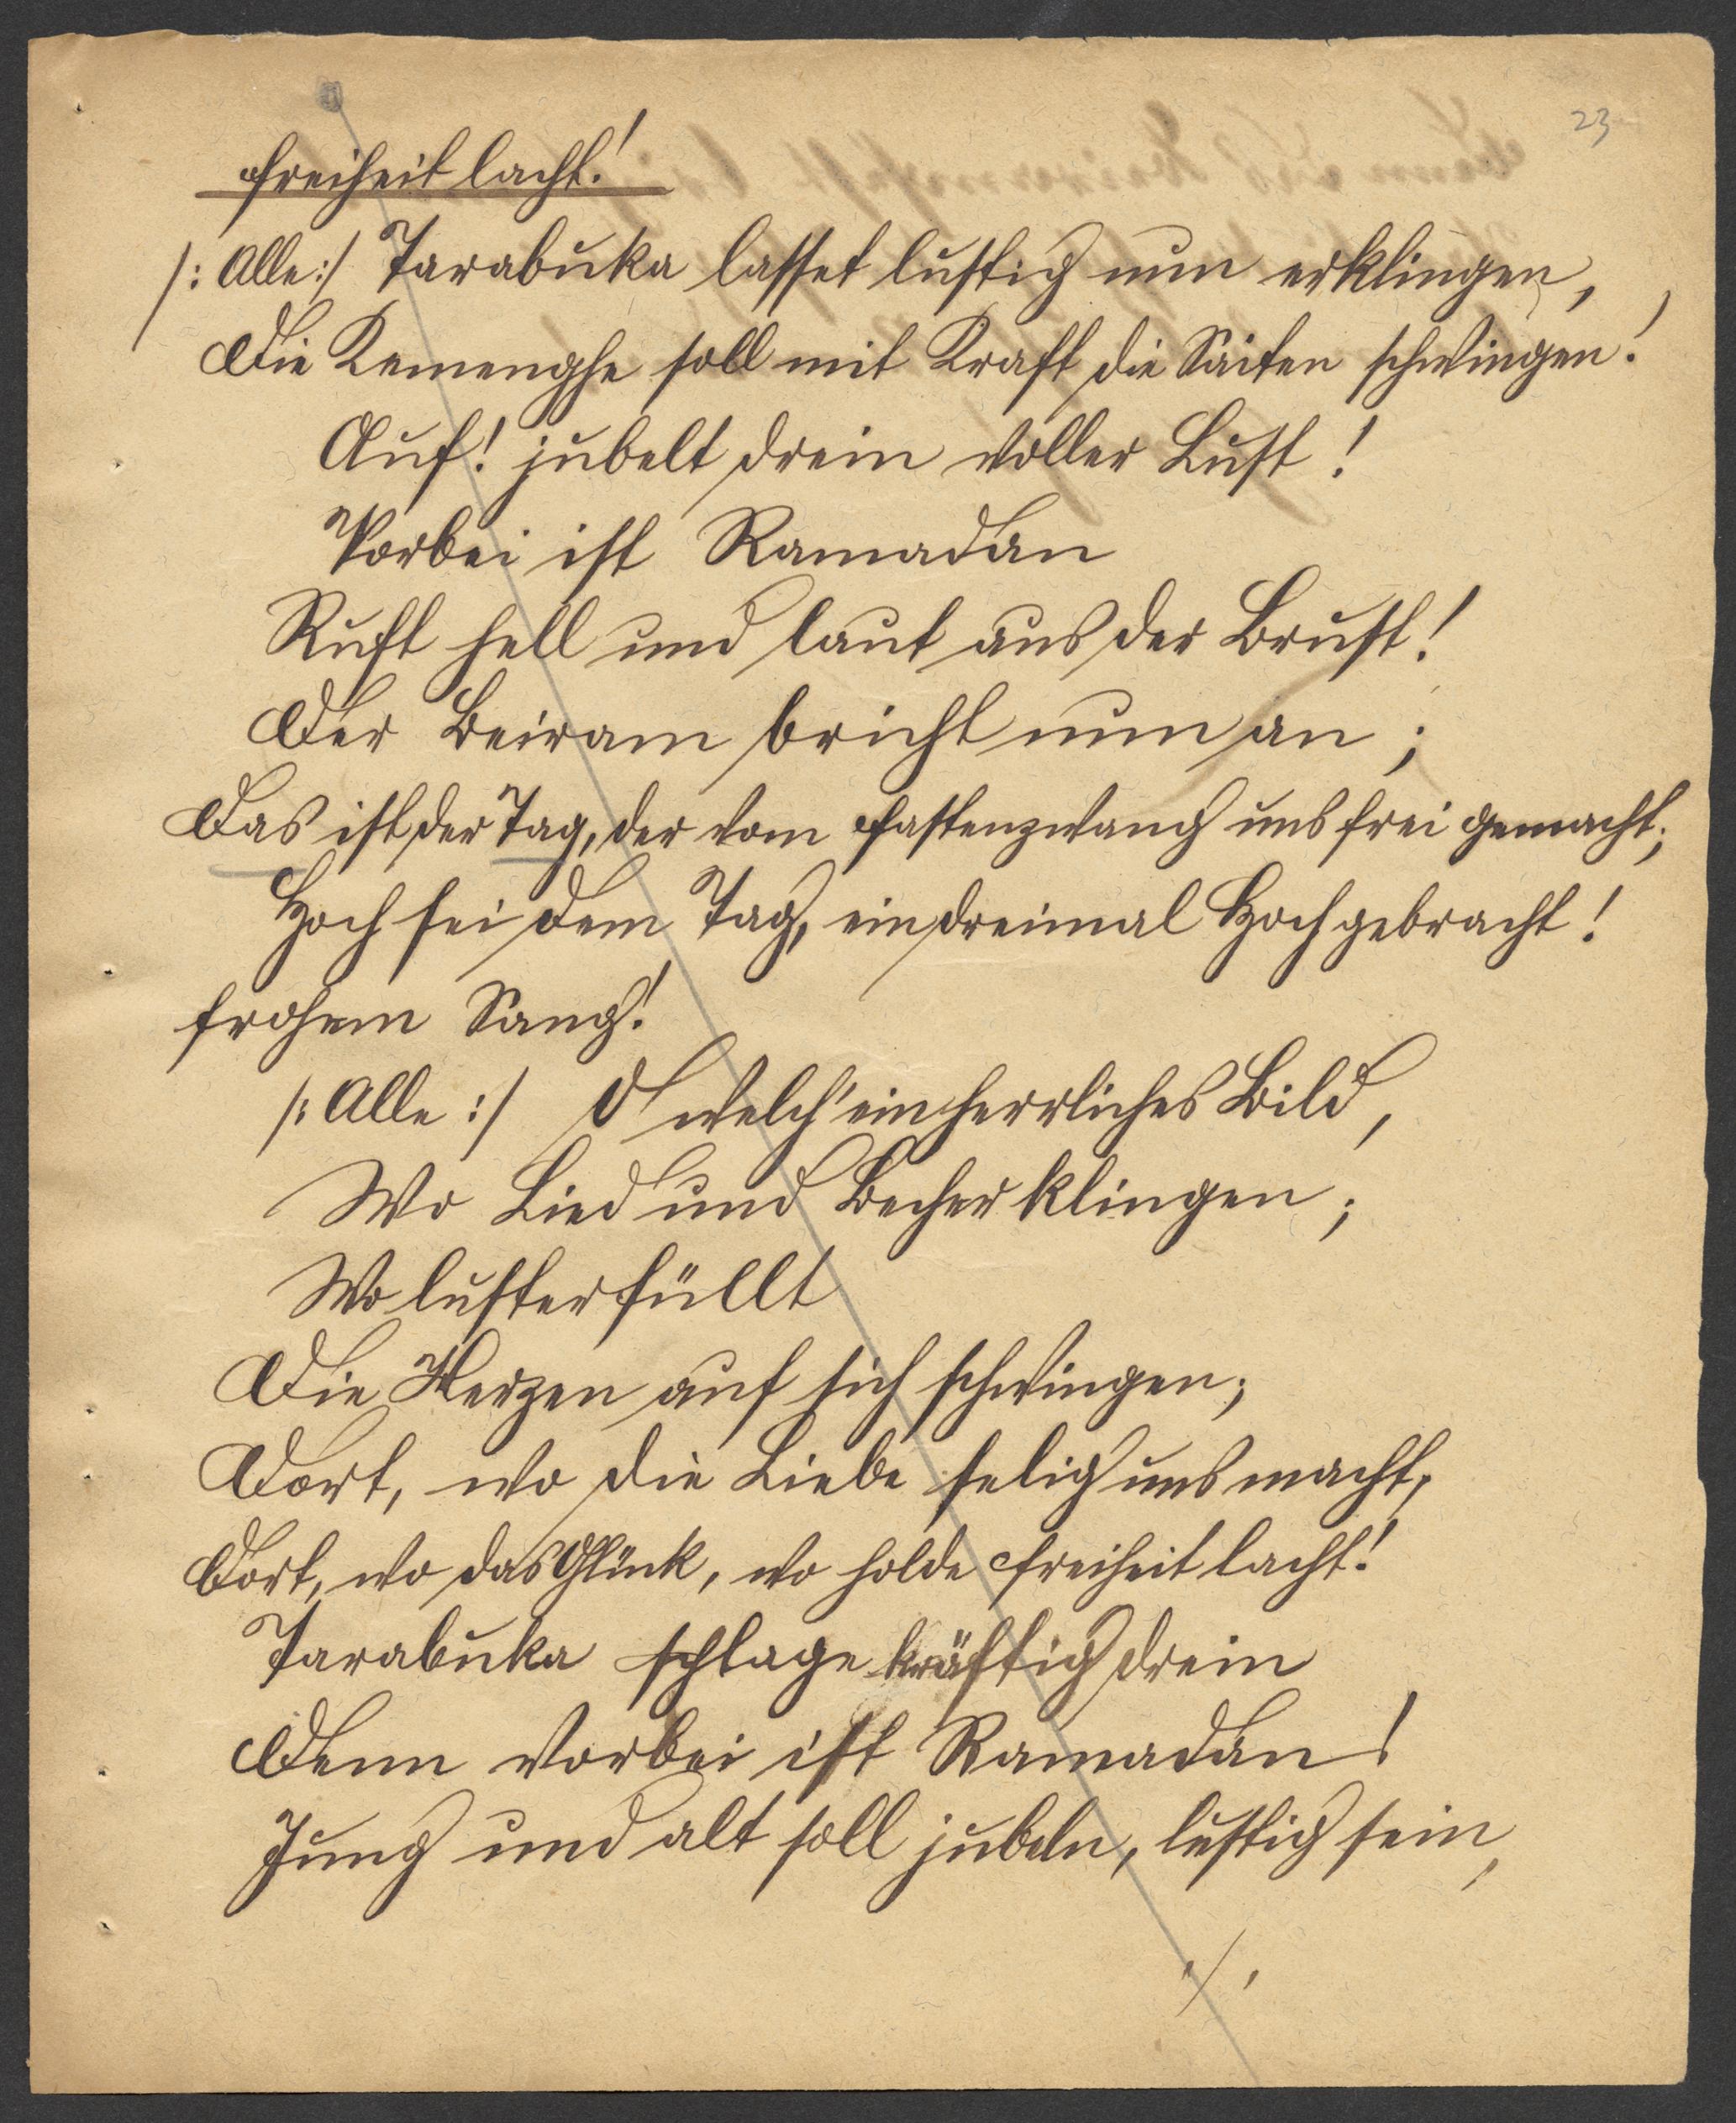 23
Freiheit lacht!
/: Alle :/ Tarabuka lasset lustig nun erklingen,
Die Kemenghe soll mit Kraft die Saiten schwingen!
Auf! jubelt drein voller Lust!
Vorbei ist Ramadan
Ruft hell und laut aus der Brust!
Der Beiram bricht nun an;
Das ist der Tag, der vom Fastenzwang uns frei gemacht;
Hoch sei dem Tag, ein dreimal Hoch gebracht!
frohem Sang!
/: Alle :/ O welch' ein herrliches Bild,
Wo Lied und Becher klingen;
Wo lusterfüllt
Die Herzen auf sich schwingen;
Dort, wo die Liebe selig uns macht,
Dort, wo das Glück, wo holde Freiheit lacht!
Tarabuka schlage kräftig drein
Denn vorbei ist Ramadan!
Jung und alt soll jubeln, lustig sein,
./.